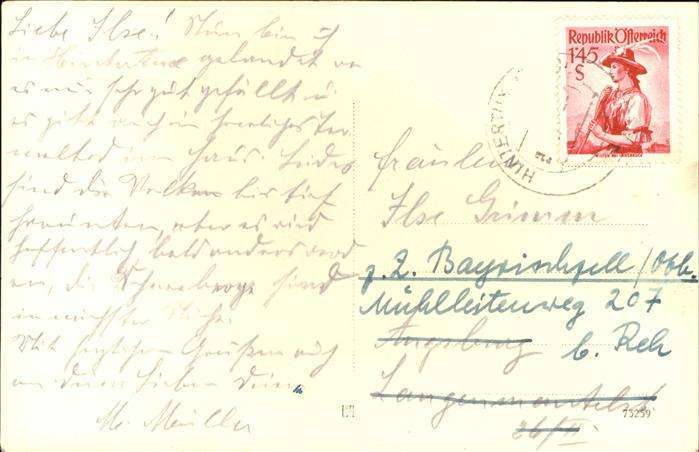 Liebe Ilse! Nun bin ich
in Hintertux gelandet wo
es mir sehr gut gefällt u.
es gibt auch ein herrliches
im Haus. Leider
sind die Wolken bis tief
herunten, aber es wird
hoffentlich bald anders werd
en, die Schneeberge sind
in nächster Nähe.
Mit herzlichen Grüßen auch
an deine Lieben
M. Müller
Republik Österreich
1'45
S
HINTERTUX
Fräulein
Ilse Grimm
z. Z. Bayrischzell/Obb.
Mühlleitenweg 207
Augsburg b. Reh
Langenmantelstr
26/II
73259